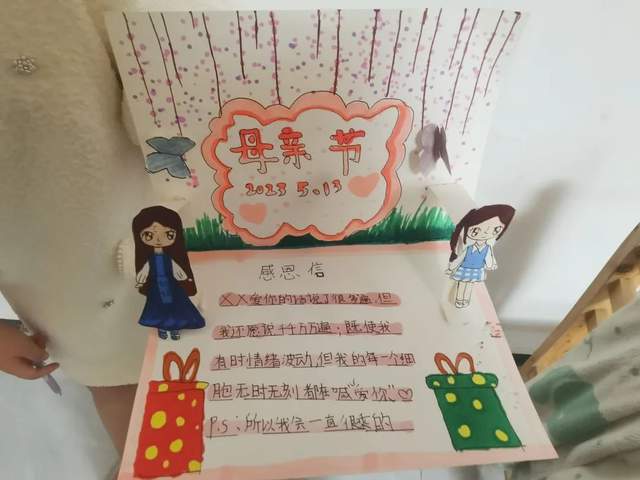 母亲节
2023 5.13
感恩信
XX爱你的话说了很多遍,但
我还愿说千千万万遍;既使我
有时情绪波动,但我的每一个细
胞无时无刻都在喊"爱你"
P.S:所以我会一直很爱的